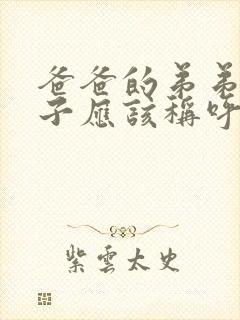 爸爸的弟弟
子应该稱呼
紫雲太史